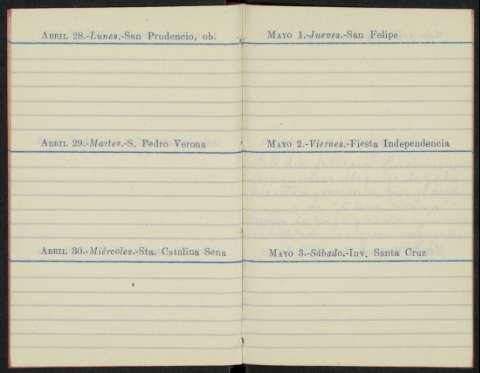 ABRIL 28.-Lunes.-San Prudencio, ob.
ABRIL 29.-Martes.-S. Pedro Verona
ABRIL 30.-Miércoles.-Sta. Catalina Sena
MAYO 1.-Jueves.-San Felipe
MAYO 2.-Viernes.-Fiesta Independencia
MAYO 3.-Sábado.-Inv. Santa Cruz